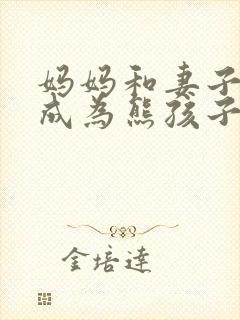 妈妈和妻子
成为熊孩子
金培達